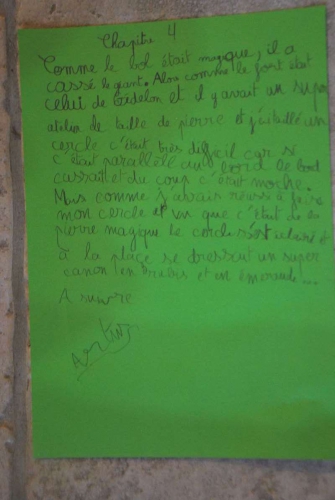 Chapitre 4
Comme le bol était magique, il a
cassé le géant. Alors comme le fort était
celui de and il y avait un super
atelier de taille de pierre et j'ai taillé un
cercle c'était très difficil car si
c'était parallèle au bord le bord
cassait et du coup c'était moche.
Mais comme j'avais réussi à faire
mon cercle et vu que c'était de la
pierre magique le cercle s'est et
à la place se dressait un super
canon en rubis et en émeraude...
A suivre